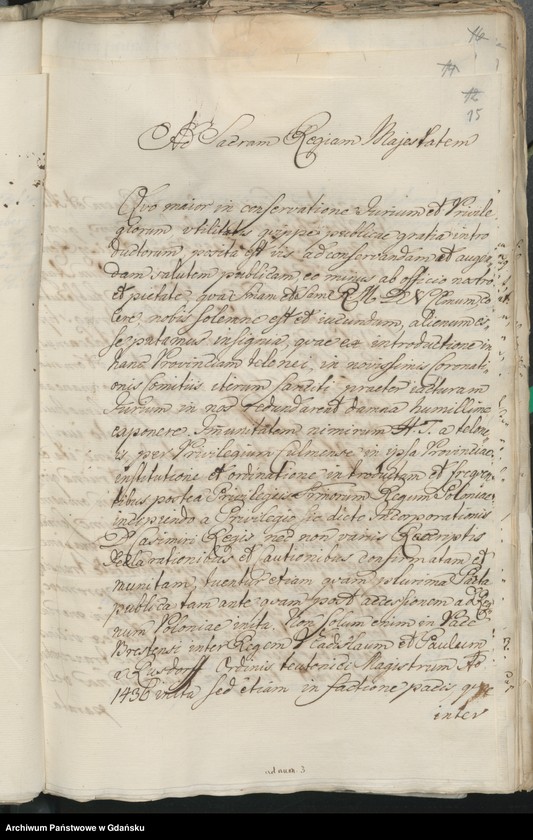 14
11
12
15
Ad Sacram Regiam Majestatem
Quo maior in conservatione Jurium et Privile
giorum utilitatis quippe publicae gratia intro
ductorum, posita est vis ad conservandam et augen
dam salutem publicam, eo minus ab officio nostro
et pietate, qua Sriam et Sam R M D N Clmum co
lere, nobis solemne est et iucundum, alienum es
se putamus insignia, quae ex introductione in
hanc Provinciam telonei, in novissimis Coronati
onis Comitiis iterum sanciti praeter iacturam
Jurium in nos redundarent damna humillime
exponere. Immunitatem nimirum a telone
is, per Privilegium Culmense in ipsa Provinciae
institutione et ordinatione introductam et frequen
tibus postea Privilegiis Regum Poloniae
incipiendo a Privilegio sic dicto Incorporationis
Casimiri Regis nec non variis Rescriptis
declarationibus et cautionibus confirmatam et
munitam, tuentur etiam quam plurima Pacta
publica tam ante quam post accessionem ad Reg
num Poloniae inita. Non solum enim in Pace
Brestensi inter Regem Vladislaum et Paulum
a Rusdorff Ordinis teutonici Magistrum Ao
1436 inita sed etiam in factione pacis quae
inter
ad num. 3
Archiwum Państwowe w Gdańsku